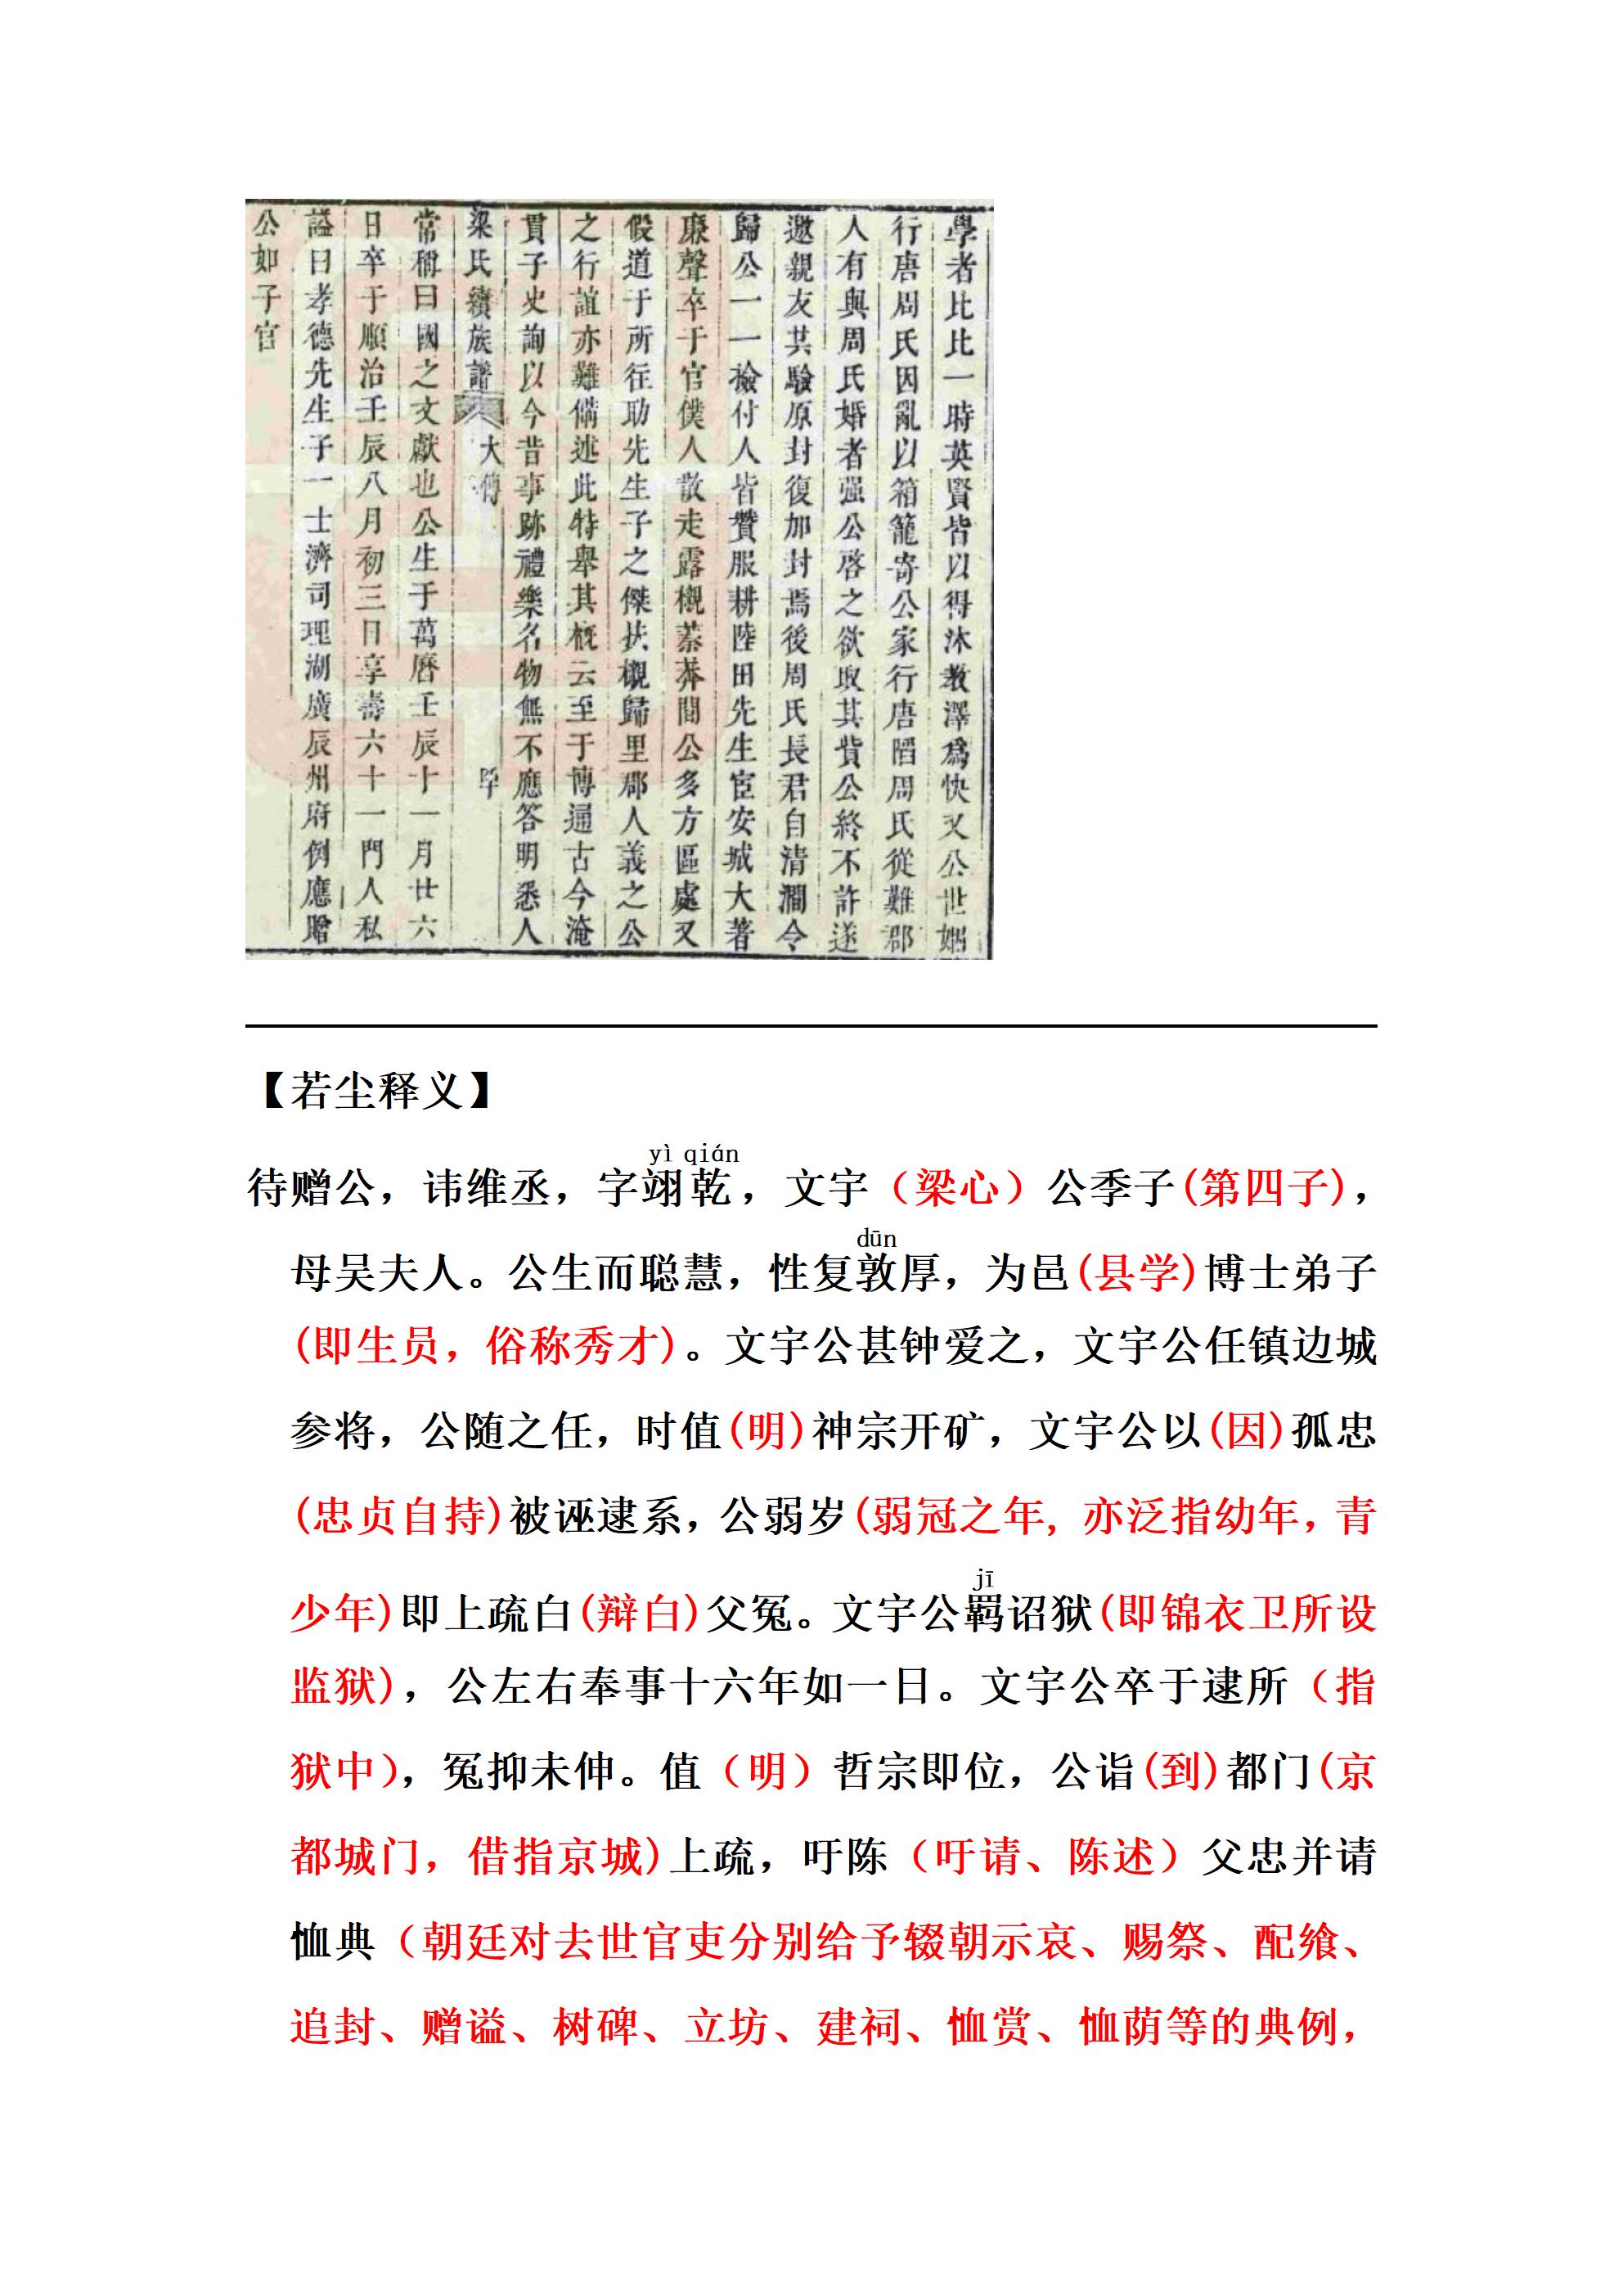 學者比比一時英賢皆以得沐教澤爲快又公世姻
行唐周氏因亂以箱籠寄公家行唐陷周氏從難郡
人有與周氏婚者强公啓之欲取其貲公終不許遂
邀親友共驗原封復加封焉後周氏長君自清澗令
歸公一一撿付人皆贊服耕陸田先生宦安城大著
廉聲卒于官僕人散走露櫬蓁莽間公多方區處又
假道于所往助先生子之傑扶櫬歸里郡人義之公
之行誼亦難備述此特舉其概云至于博通古今淹
貫子史詢以今昔事跡禮樂名物無不應答明悉人
梁氏續族譜 大傳
常稱曰國之文獻也公生于萬曆壬辰十一月廿六
日卒于順治壬辰八月初三日享壽六十一門人私
謚曰孝德先生子一士濟司理湖廣辰州府例應贈
公如子官
【若尘释义】
yì qián
待赠公，讳维丞，字翊乾，文宇（梁心）公季子(第四子)，
dūn
母吴夫人。公生而聪慧，性复敦厚，为邑(县学)博士弟子
(即生员，俗称秀才)。文宇公甚钟爱之，文宇公任镇边城
参将，公随之任，时值(明)神宗开矿，文宇公以(因)孤忠
(忠贞自持)被诬逮系，公弱岁(弱冠之年, 亦泛指幼年，青
jī
少年)即上疏白(辩白)父冤。文宇公羁诏狱(即锦衣卫所设
监狱)，公左右奉事十六年如一日。文宇公卒于逮所（指
狱中)，冤抑未伸。值（明）哲宗即位，公诣(到)都门(京
都城门，借指京城)上疏，吁陈（吁请、陈述）父忠并请
恤典（朝廷对去世官吏分别给予辍朝示哀、赐祭、配飨、
追封、赠谥、树碑、立坊、建祠、恤赏、恤荫等的典例，